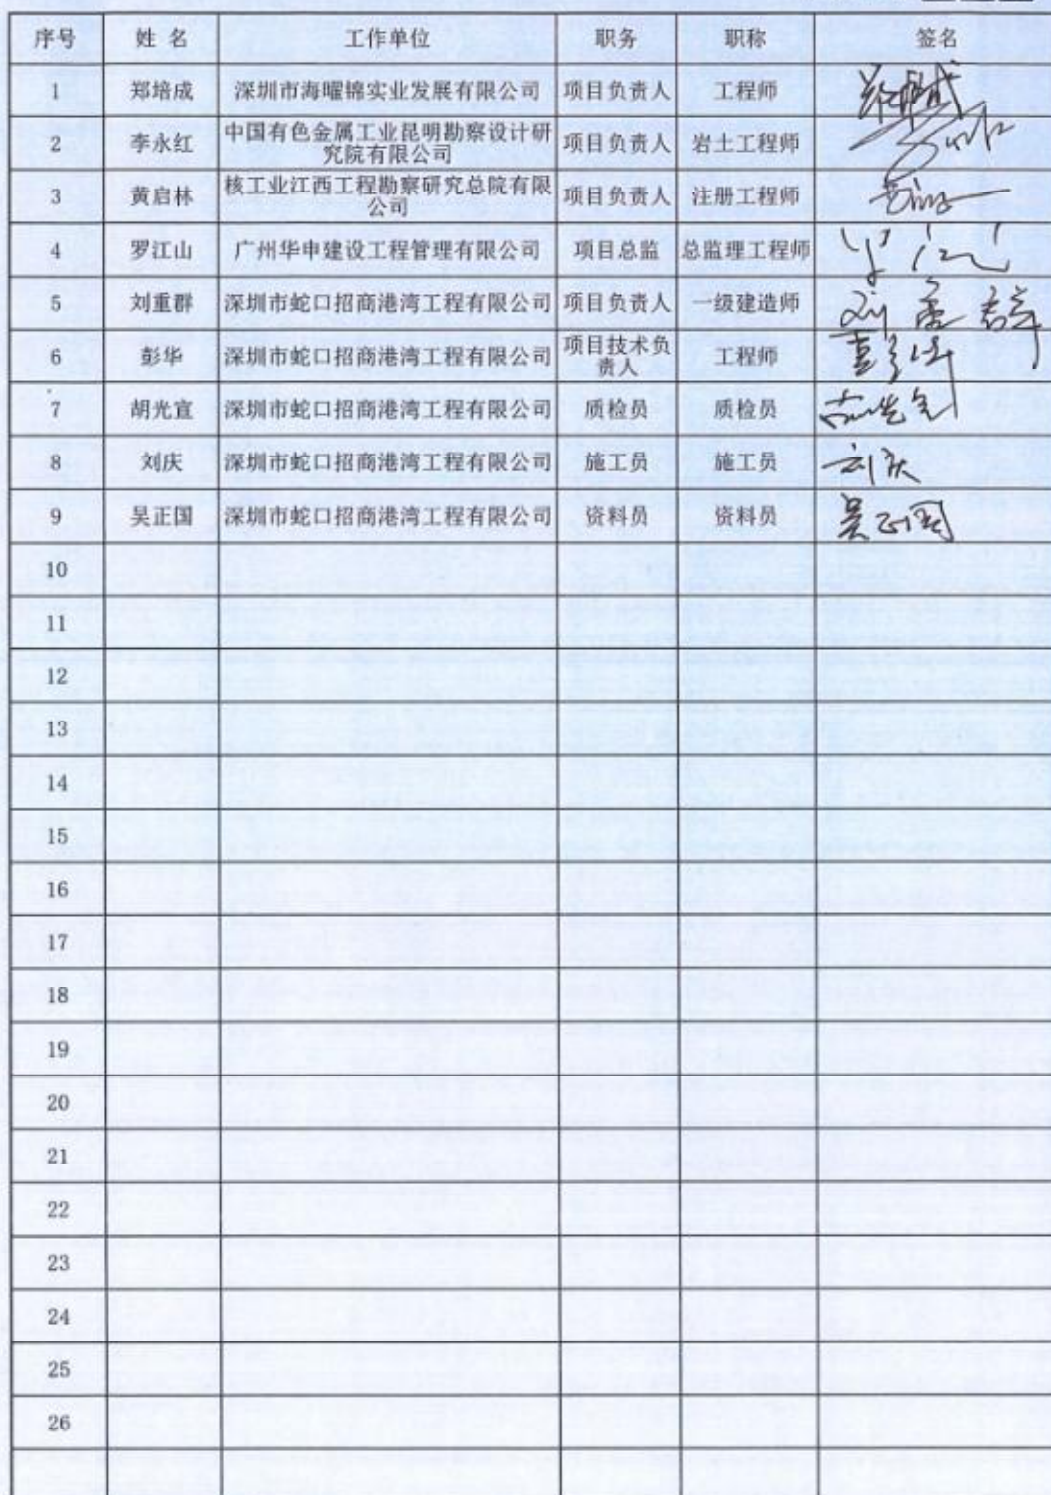 序号 姓 名 工作单位 职务 职称 签名
1 郑培成 深圳市海曜锦实业发展有限公司 项目负责人 工程师
2 李永红 中国有色金属工业昆明勘察设计研究院有限公司 项目负责人 岩土工程师
3 黄启林 核工业江西工程勘察研究总院有限公司 项目负责人 注册工程师
4 罗江山 广州华申建设工程管理有限公司 项目总监 总监理工程师
5 刘重群 深圳市蛇口招商港湾工程有限公司 项目负责人 一级建造师 刘重群
6 彭华 深圳市蛇口招商港湾工程有限公司 项目技术负责人 工程师
7 胡光宣 深圳市蛇口招商港湾工程有限公司 质检员 质检员
8 刘庆 深圳市蛇口招商港湾工程有限公司 施工员 施工员 刘庆
9 吴正国 深圳市蛇口招商港湾工程有限公司 资料员 资料员 吴正国
10
11
12
13
14
15
16
17
18
19
20
21
22
23
24
25
26